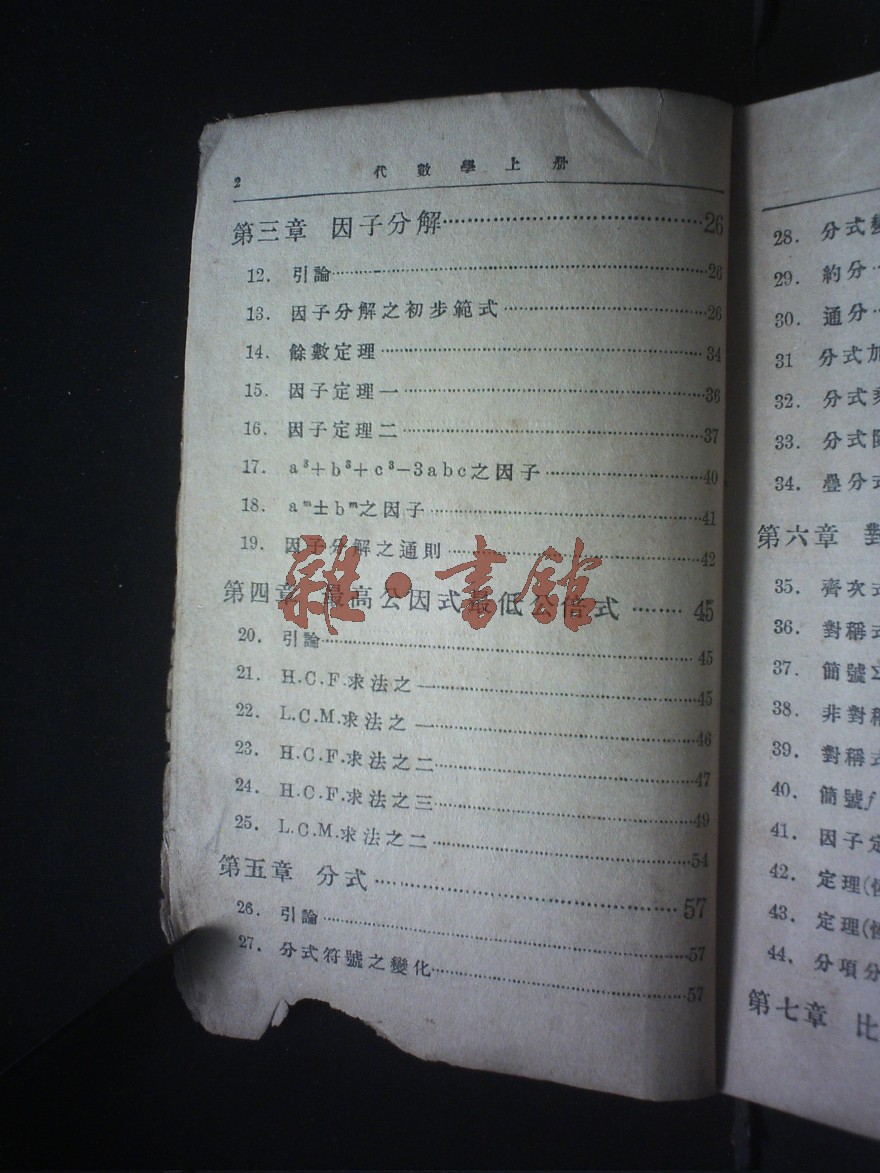 2
代數學上册
第三章 因子分解 26
12. 引論 26
13. 因子分解之初步範式 26
14. 餘數定理 34
15. 因子定理一 36
16. 因子定理二 37
17. a³+b³+c³-3abc之因子 40
18. aᵐ±bᵐ之因子 41
19. 因子分解之通則 42
第四章 最高公因式最低公倍式 45
雜·書館
20. 引論 45
21. H.C.F.求法之一 45
22. L.C.M.求法之一 46
23. H.C.F.求法之二 47
24. H.C.F.求法之三 49
25. L.C.M.求法之二 54
第五章 分式 57
26. 引論 57
27. 分式符號之變化 57
28. 分式
29. 約分
30. 通分
31 分式加
32. 分式
33. 分式
34. 疊分式
第六章 對
35. 齊次式
36. 對稱式
37. 簡號Σ
38. 非對稱
39. 對稱式
40. 簡號f
41. 因子定
42. 定理(
43. 定理(
44. 分項分
第七章 比